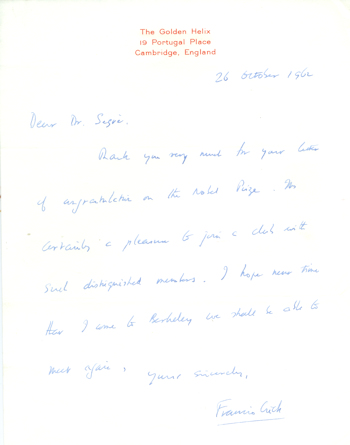 The Golden Helix
19 Portugal Place
Cambridge, England
26 October 1962
Dear Dr. Segrè.
Thank you very much for your letter
of congratulation on the Nobel Prize. It is
certainly a pleasure to join a club with
such distinguished members. I hope next time
that I come to Berkeley we shall be able to
meet again.
Yours sincerely,
Francis Crick